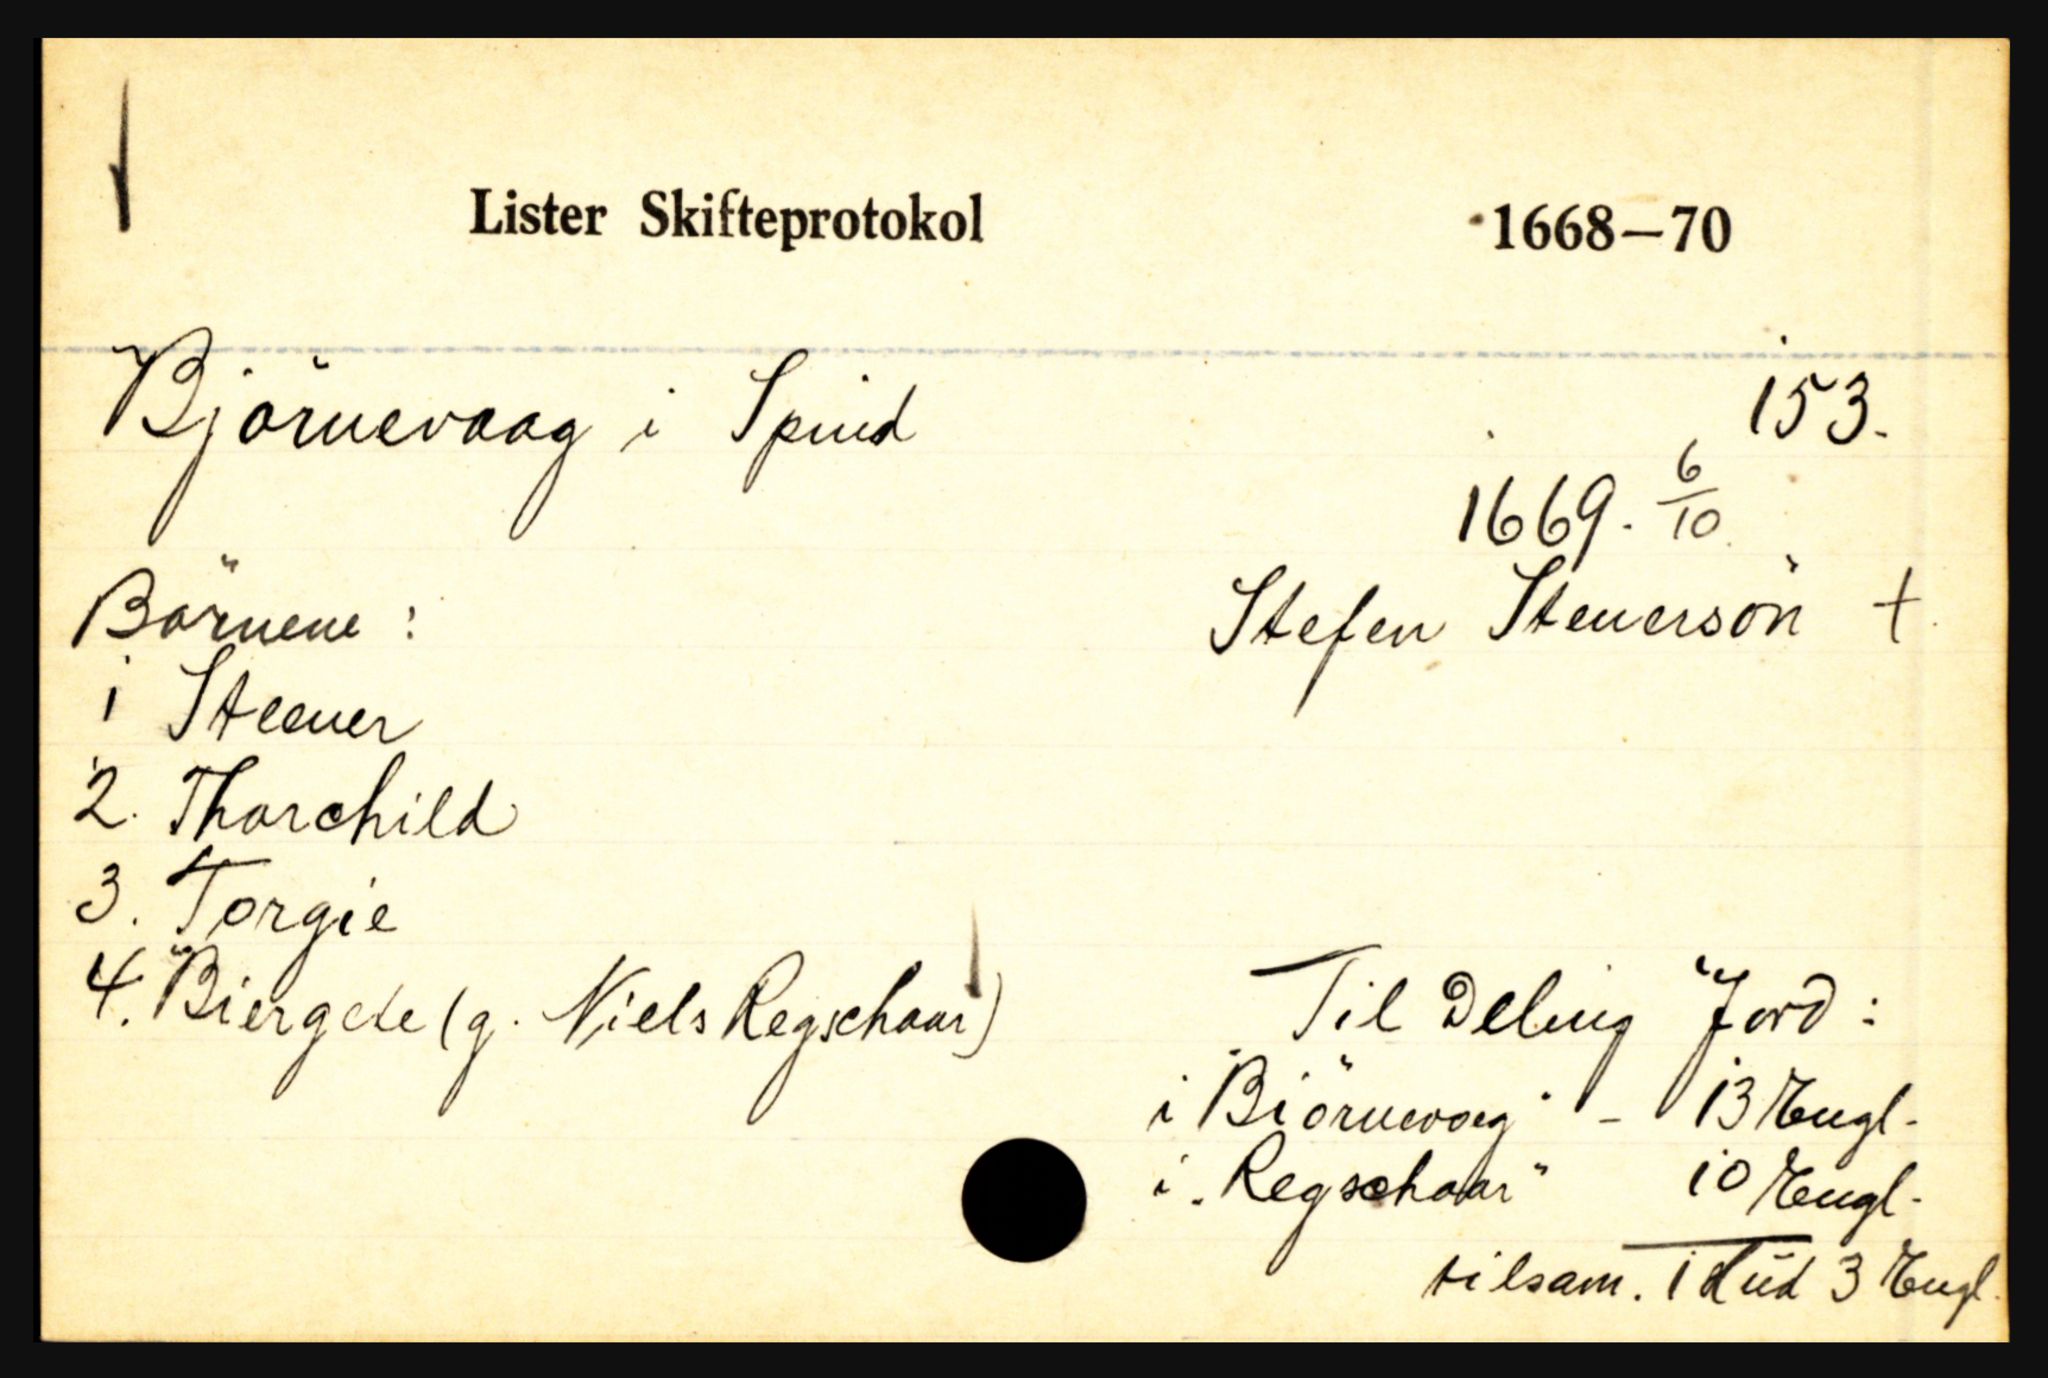 Lister Skifteprotokol 1668—70
Björnevaag i Spind 153.
1669. 6/10.
Börnene :
Stefen Stenersön †
1 Steener
2. Thorchild
3. Torgie
4. Biergete (g. Niels Regschaar)
Til Deling "Jord :
i Biörnevaag" - 13 Engl.
i "Regschaar" 10 Engl.
tilsam. 1 Hüd 3 Engl.